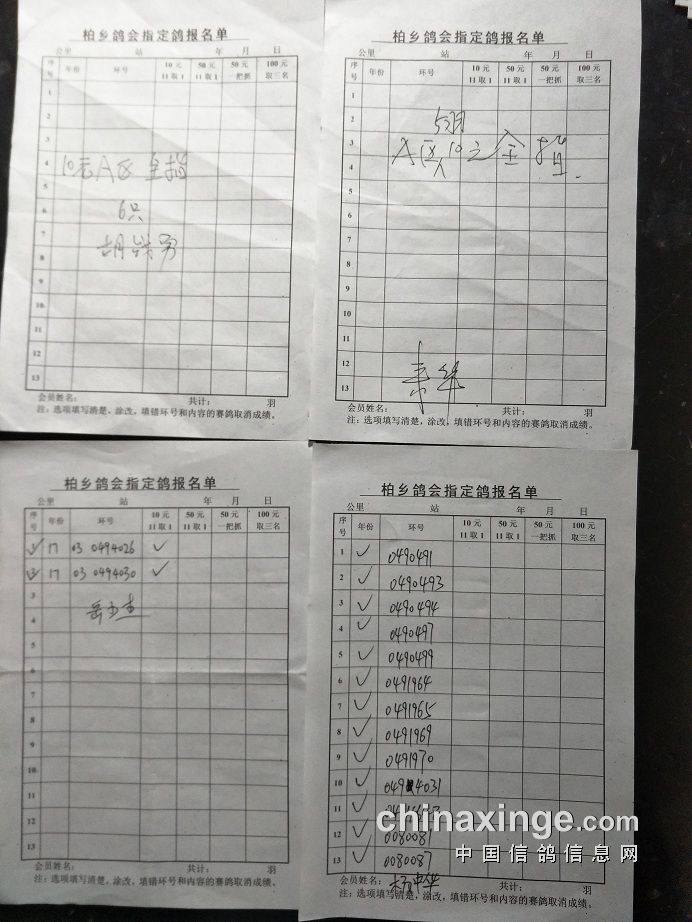 柏乡鸽会指定鸽报名单
公里 站 年 月 日
序号 年份 环号 10元11取1 50元11取1 50元一把抓 100元取三名
1
2
3
4
10元A区全指
5
6
6只
7
8
9
10
11
12
13
会员姓名： 共计： 羽
注：选项填写清楚、涂改、填错环号和内容的赛鸽取消成绩。
柏乡鸽会指定鸽报名单
公里 站 年 月 日
序号 年份 环号 10元11取1 50元11取1 50元一把抓 100元取三名
1
2
5羽
3
A区10元全指.
4
5
6
7
8
9
10
11
12
13
会员姓名： 共计： 羽
注：选项填写清楚，涂改，填错环号和内容的赛鸽取消成绩。
柏乡鸽会指定鸽报名单
公里 站 年 月 日
序号 年份 环号 10元11取1 50元11取1 50元一把抓 100元取三名
1 17 03 0494026 ✓
2 17 03 0494030 ✓
3
4
5
6
7
8
9
10
11
12
13
会员姓名： 共计： 羽
注：选项填写清楚，涂改，填错环号和内容的赛鸽取消成绩。
柏乡鸽会指定鸽报名单
公里 站 年 月 日
序号 年份 环号 10元11取1 50元11取1 50元一把抓 100元取三名
1 ✓ 0490491
2 ✓ 0490493
3 ✓ 0490494
4 ✓ 0490497
5 ✓ 0490499
6 ✓ 0491964
7 ✓ 0491965
8 ✓ 0491969
9 ✓ 0491970
10 ✓ 0494031
11 ✓
12 ✓ 0080081
13 ✓ 0080087
会员姓名： 杨中华 共计： 羽
注：选项填写清楚，涂改，填错环号和内容的赛鸽取消成绩。
chinaxinge.com
中国信鸽信息网